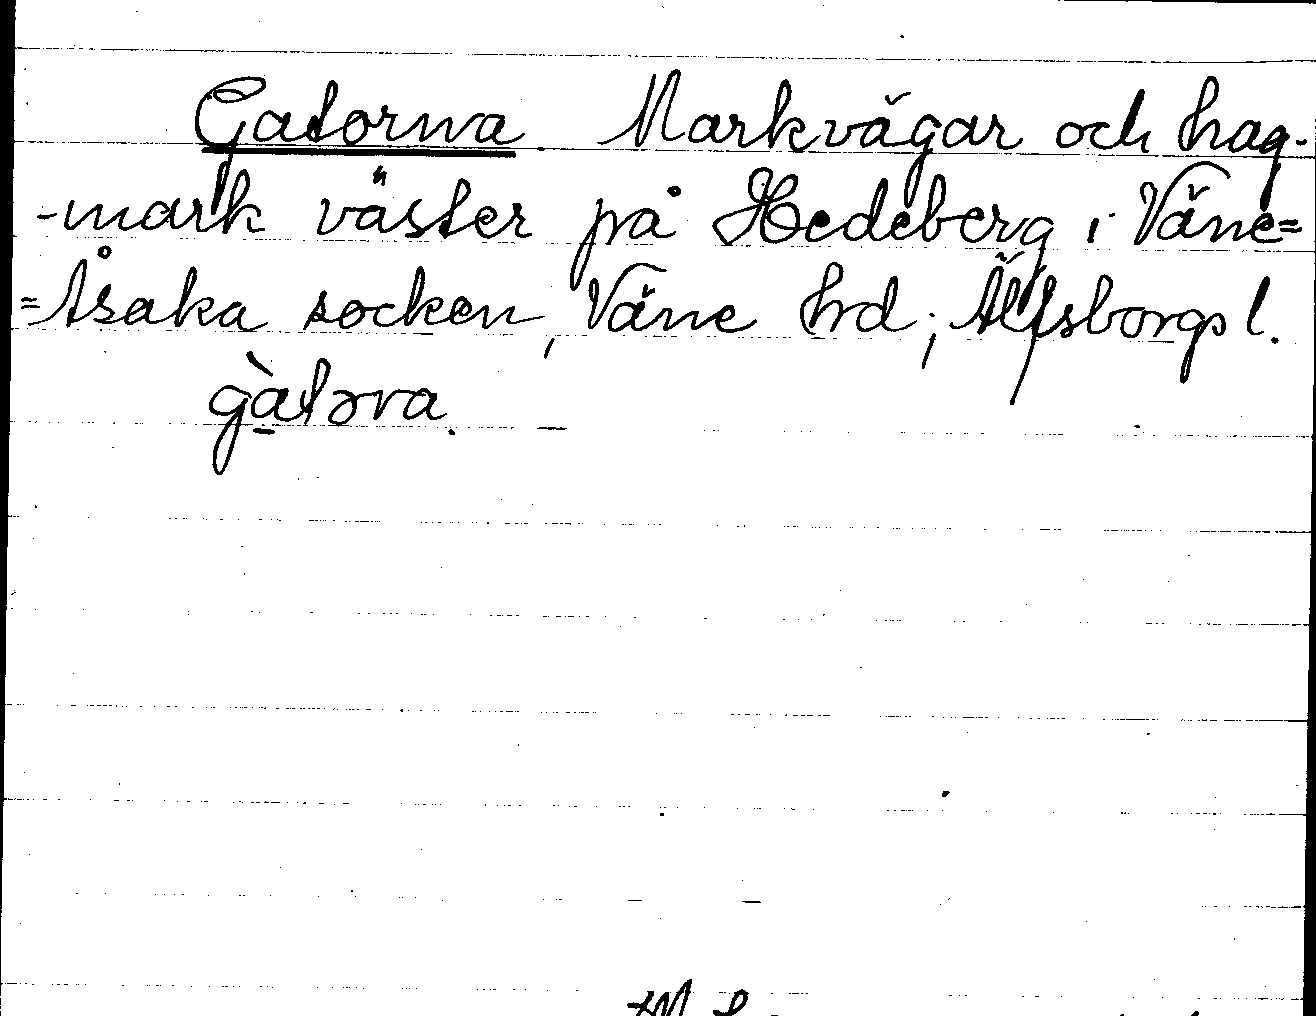 Gatorna. Markvägar och hag-
-mark väster på Hedeberg i Väne=
=Åsaka socken, Väne hd; Älfsborgs l.
gàtɔra.